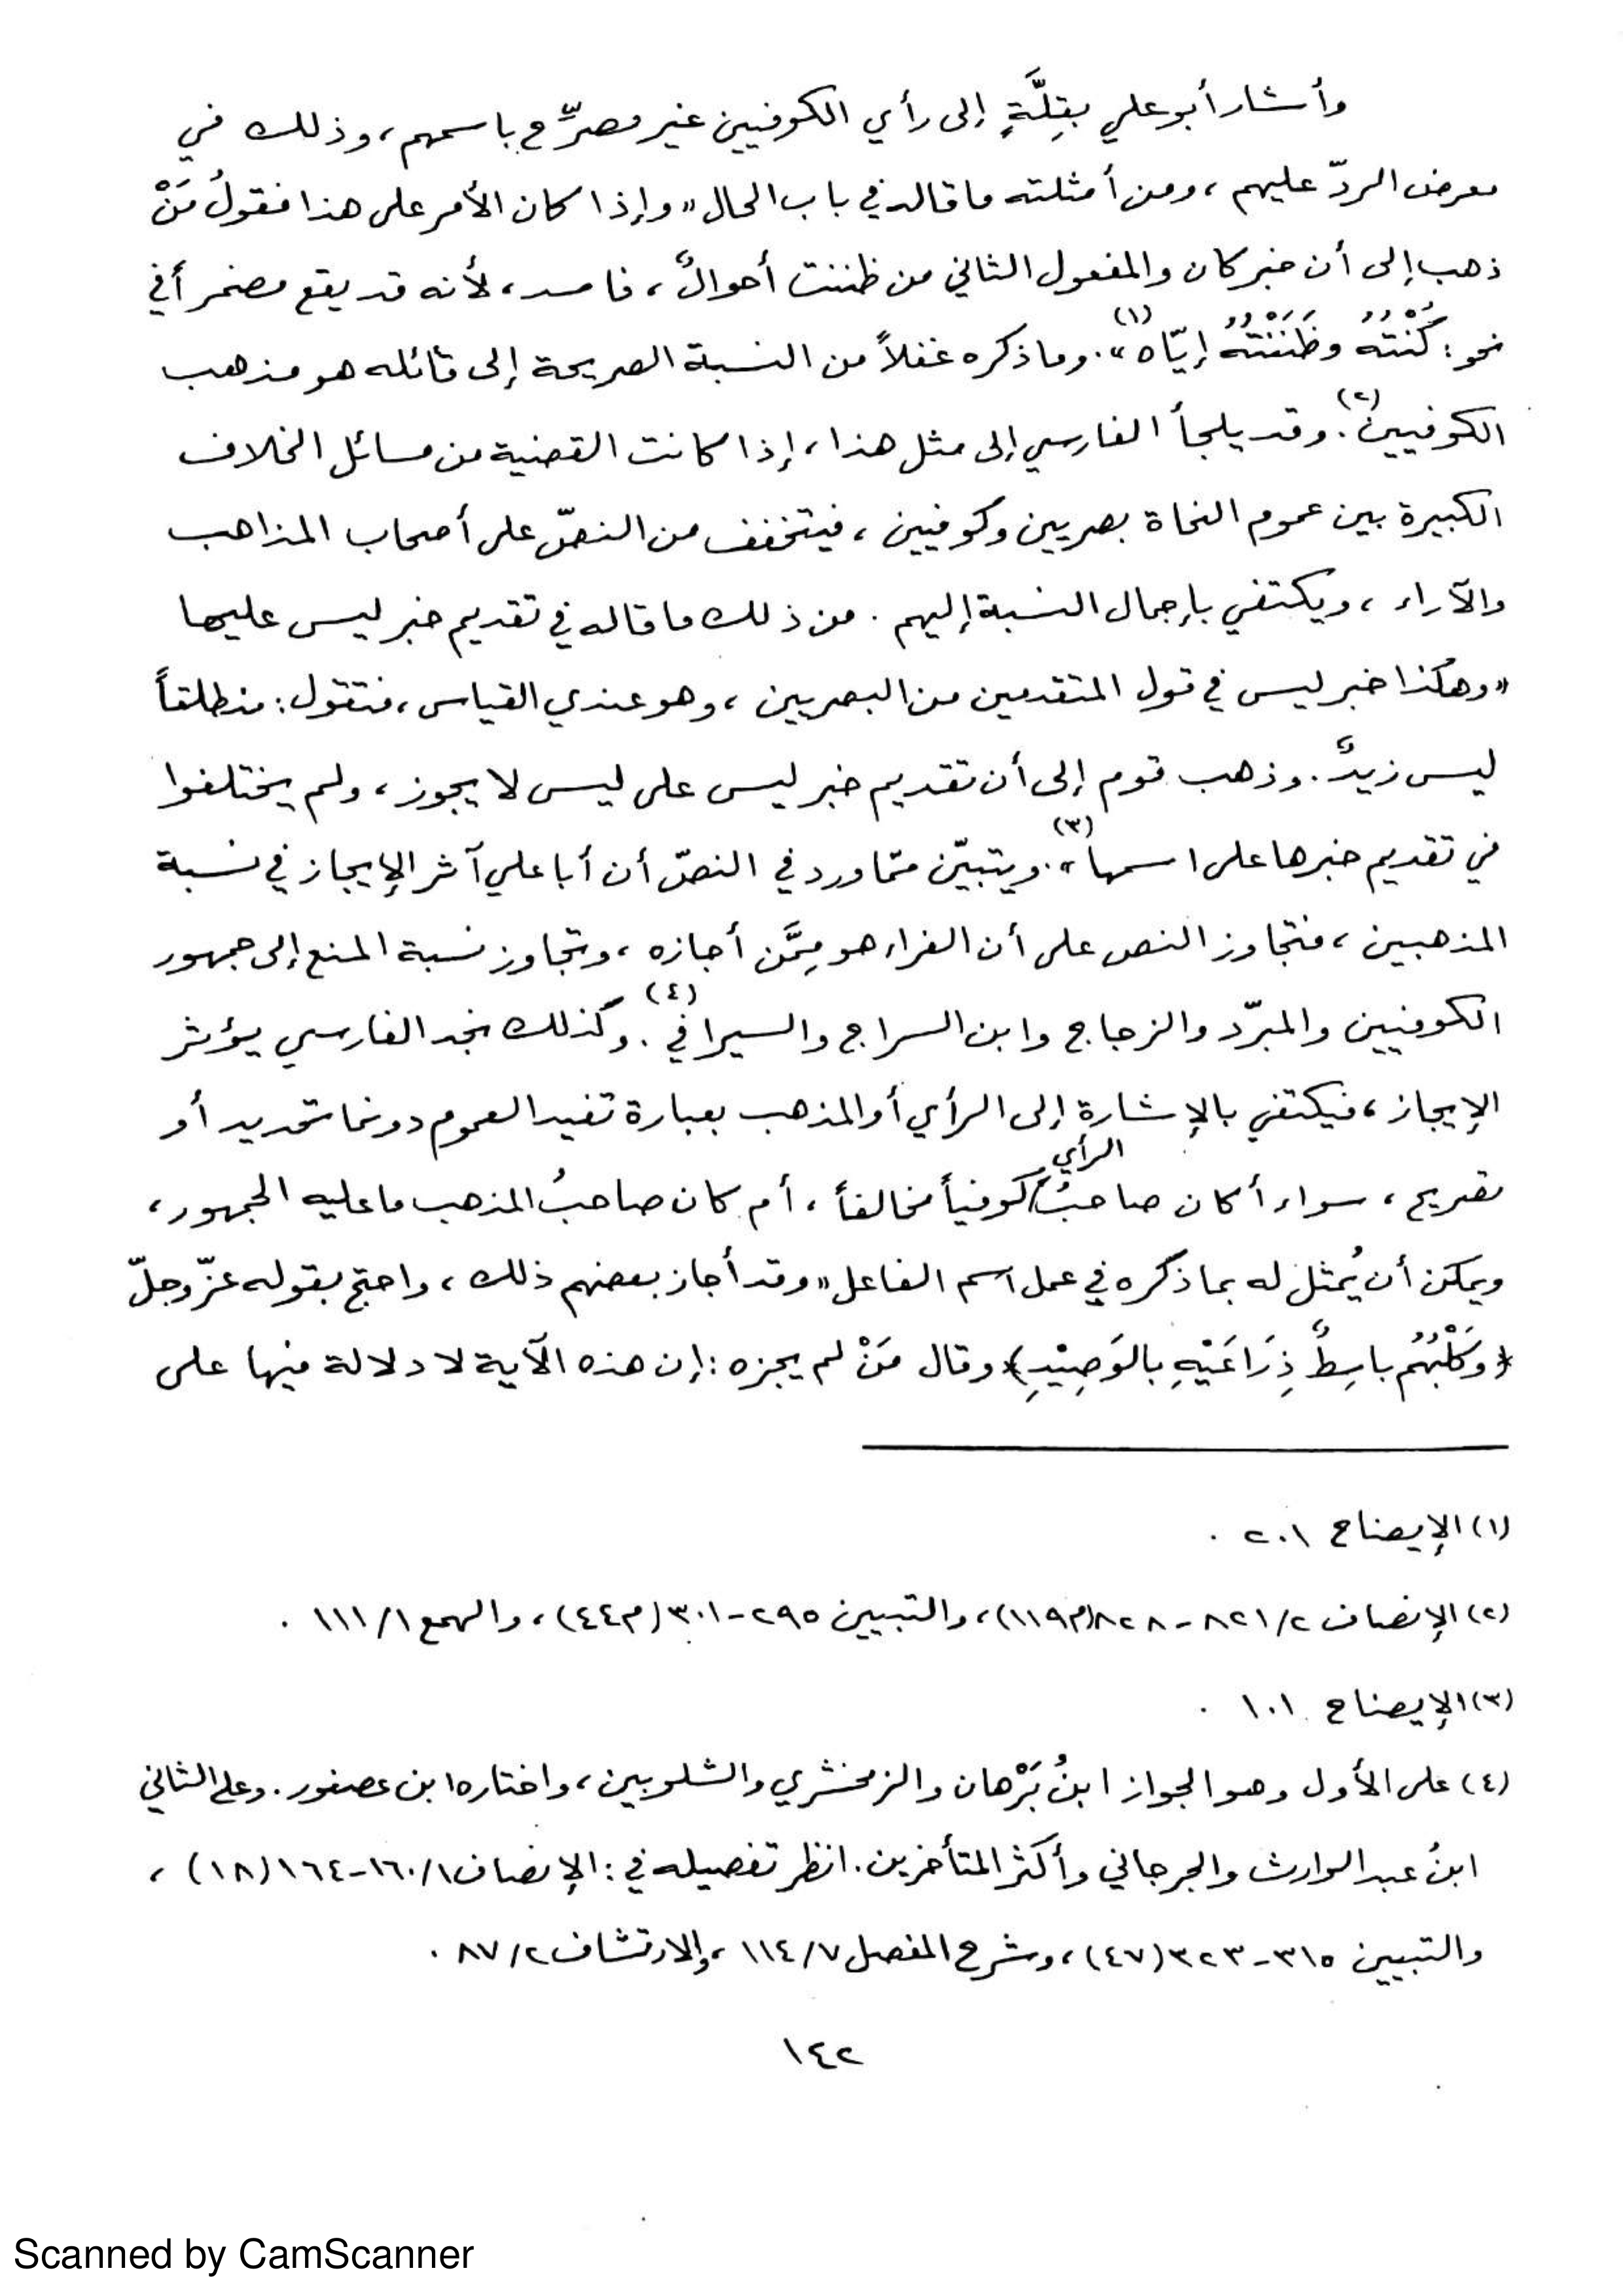 وأشار أبو علي بقِلَّةٍ إلى رأي الكوفيين غير مصرِّح باسمهم، وذلك في
معرض الردّ عليهم، ومن أمثلته ما قاله في باب الحال «وإذا كان الأمر على هذا فقولُ مَنْ
ذهب إلى أن خبر كان والمفعول الثاني من ظننت أحوالٌ، فاسد، لأنه قد يقع مضمراً في
نحو: كُنْتُهُ وظَنَنْتُهُ إيّاه»(١). وما ذكره غفلاً من النسبة الصريحة إلى قائله هو مذهب
الكوفيين(٢). وقد يلجأ الفارسي إلى مثل هذا، إذا كانت القضية من مسائل الخلاف
الكبيرة بين عموم النحاة بصريين وكوفيين، فيتخفف من النصّ على أصحاب المذاهب
والآراء، ويكتفي بإجمال النسبة إليهم. من ذلك ما قاله في تقديم خبر ليس عليها
«وهكذا خبر ليس في قول المتقدمين من البصريين، وهو عندي القياس، فتقول: منطلقاً
ليس زيدٌ. وذهب قوم إلى أن تقديم خبر ليس على ليس لا يجوز، ولم يختلفوا
في تقديم خبرها على اسمها»(٣). ويتبيّن ممّا ورد في النصّ أن أبا علي آثر الإيجاز في نسبة
المذهبين، فتجاوز النص على أن الفراء هو مِمَّن أجازه، وتجاوز نسبة المنع إلى جمهور
الكوفيين والمبرّد والزجاج وابن السراج والسيرافي(٤). وكذلك نجد الفارسي يؤثر
الإيجاز، فيكتفي بالإشارة إلى الرأي أو المذهب بعبارة تفيد العموم دونما تحديد أو
تصريح، سواء أكان صاحبُ الرأي كوفياً مخالفاً، أم كان صاحبُ المذهب ما عليه الجمهور،
ويمكن أن يُمثل له بما ذكره في عمل اسم الفاعل «وقد أجاز بعضهم ذلك، واحتج بقوله عزّ وجلّ
﴿وَكَلْبُهُم باسِطٌ ذِرَاعَيْهِ بالوَصِيْدِ﴾ وقال مَنْ لم يجزه: إن هذه الآية لا دلالة فيها على
(١) الإيضاح ٢٠١ .
(٢) الإنصاف ٨٢١/٢ - ٨٢٨ (م١١٩)، والتبيين ٢٩٥-٣٠١ (م٤٤)، والهمع ١١١/١ .
(٣) الإيضاح ١٠١ .
(٤) على الأول وهو الجواز ابنُ بَرْهان والزمخشري والشلوبين، واختاره ابن عصفور. وعلى الثاني
ابنُ عبد الوارث والجرجاني وأكثر المتأخرين. انظر تفصيله في: الإنصاف ١٦٠/١-١٦٤ (١٨)،
والتبيين ٣١٥-٣٢٣ (٤٧)، وشرح المفصل ١١٤/٧، والارتشاف ٨٧/٢ .
١٤٢
Scanned by CamScanner